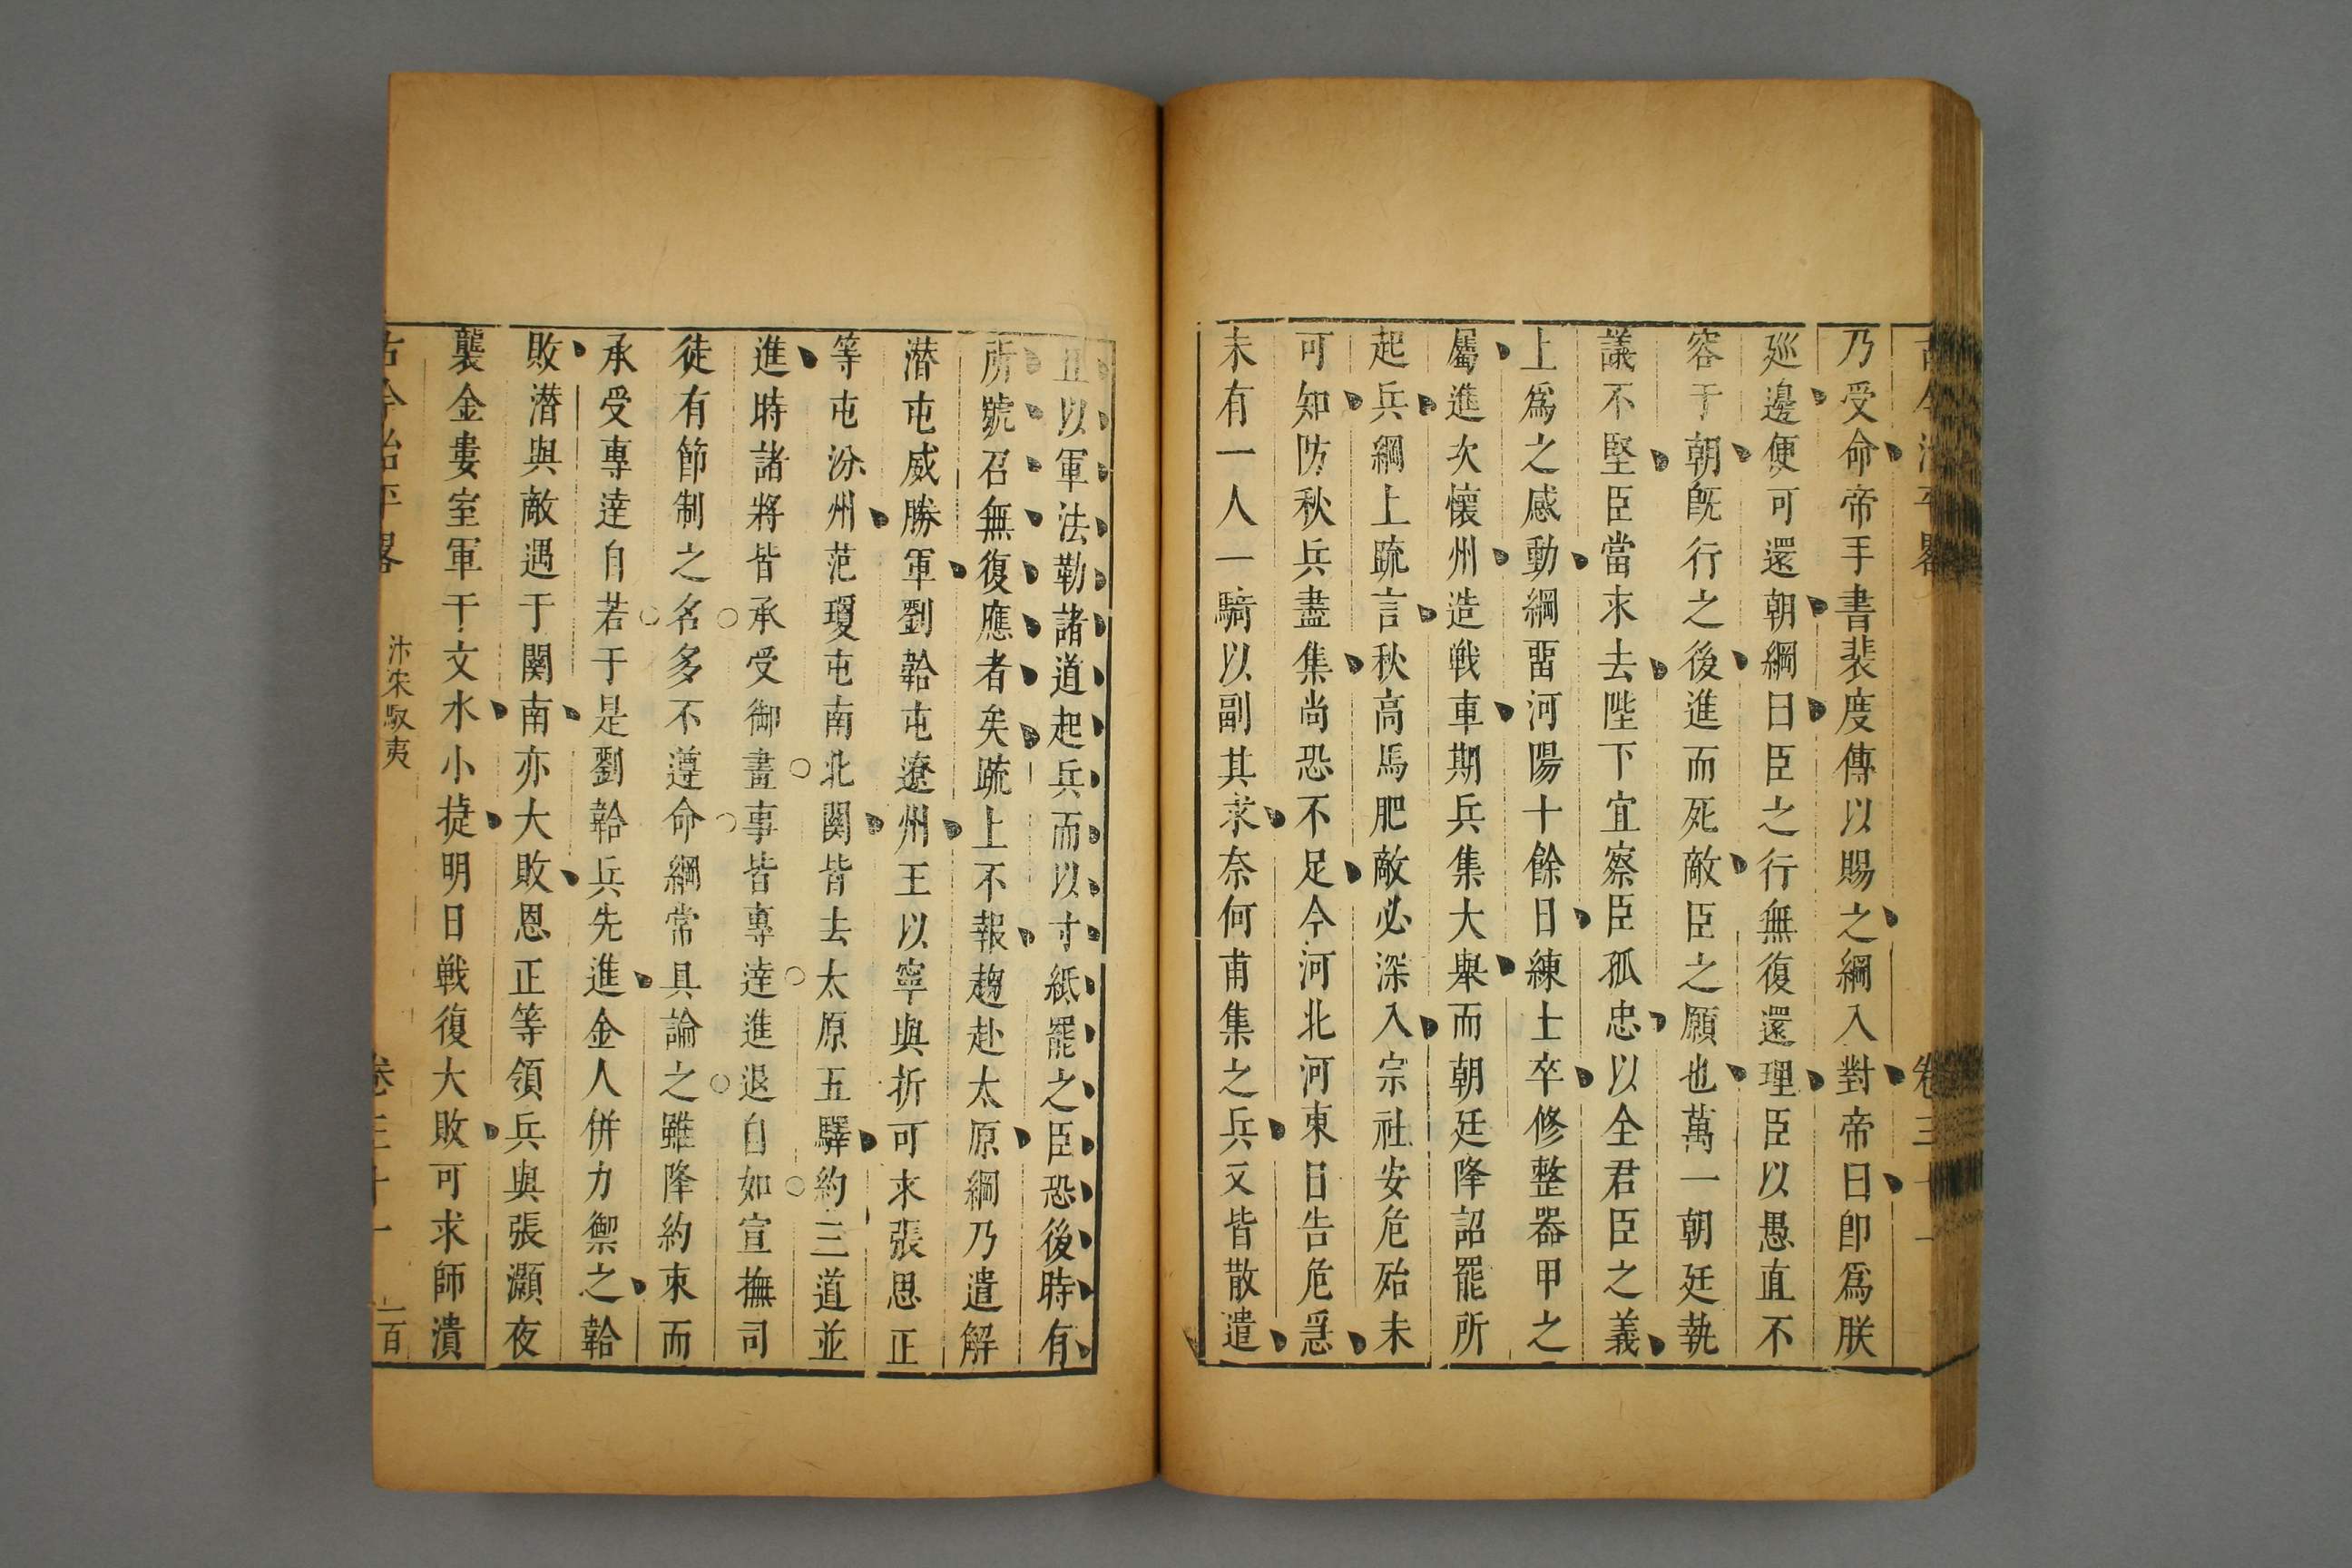 古今治平畧 卷三十一
乃受命帝手書裴度傳以賜之綱入對帝曰卽爲朕
廵邊便可還朝綱曰臣之行無復還理臣以愚直不
容于朝旣行之後進而死敵臣之願也萬一朝廷執
議不堅臣當求去陛下宜察臣孤忠以全君臣之義
上爲之感動綱畱河陽十餘日練士卒修整器甲之
屬進次懷州造戦車期兵集大舉而朝廷降詔罷所
起兵綱上疏言秋高馬肥敵必深入宗社安危殆未
可知防秋兵盡集尚恐不足今河北河東日告危急
未有一人一騎以副其求奈何甫集之兵又皆散遣
且以軍法勒諸道起兵而以寸紙罷之臣恐後時有
所號召無復應者矣疏上不報趨赴太原綱乃遣解
潜屯威勝軍劉韐屯遼州王以寧與折可求張思正
等屯汾州范瓊屯南北関皆去太原五驛約三道並
進時諸將皆承受御畫事皆專達進退自如宣撫司
徒有節制之名多不遵命綱常具論之雖降約束而
承受專達自若于是劉韐兵先進金人併力禦之韐
敗潜與敵遇于関南亦大敗思正等領兵與張灝夜
襲金婁室軍于文水小捷明日戦復大敗可求師潰
古今治平畧 汴宋馭夷 卷三十一 一百